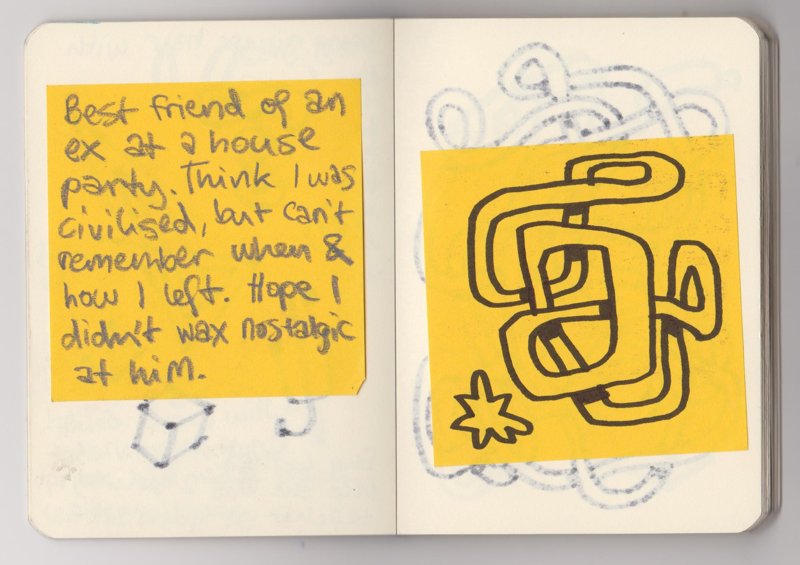 Best friend of an
ex at a house
party. Think I was
civilised, but can't
remember when &
how I left. Hope I
didn't wax nostalgic
at him.